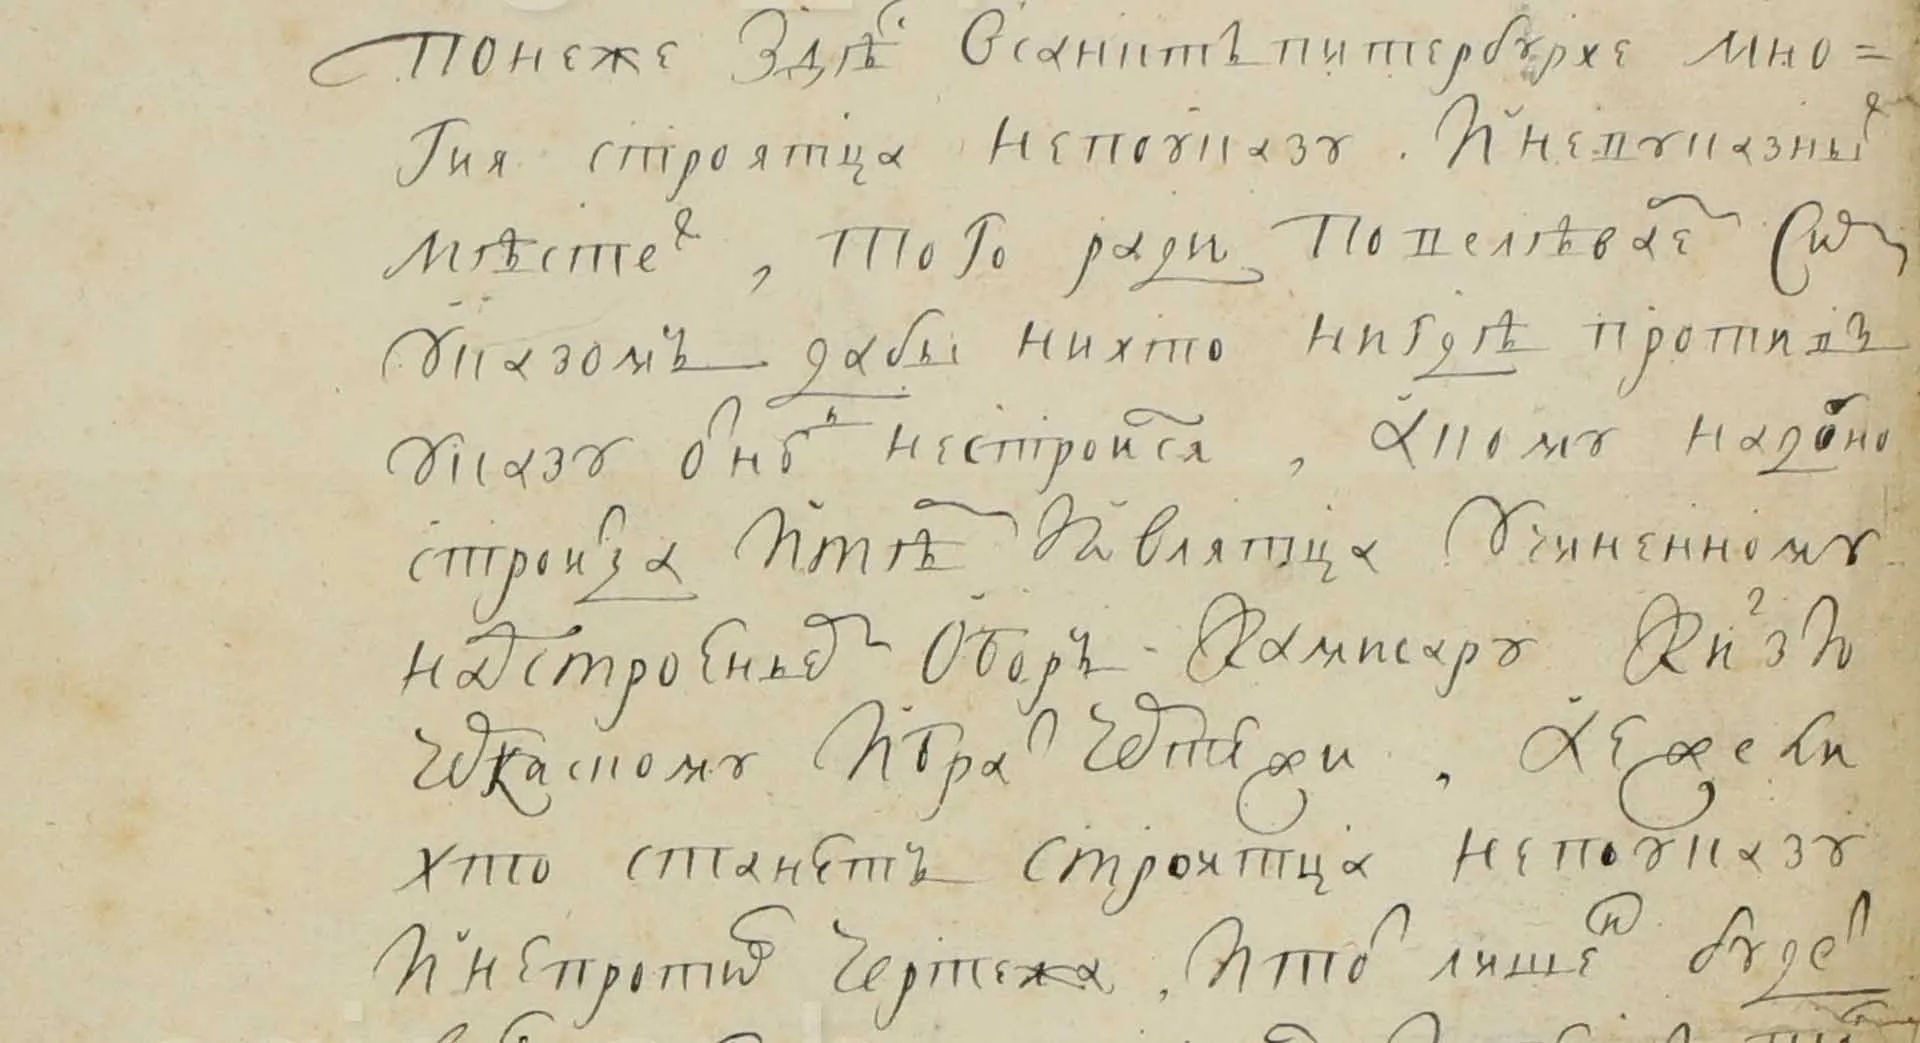 Понеже здѣс всанктъпитербурхе мно=
гия строятца непоуказу. Иневуказных
мѣстех, того ради повелѣвает сим
указомъ дабы нихто нигдѣ противъ
указу онб нестроися, акому надобно
строица итѣ являтца учиненному
надстроением обор- камисару князю
черкаскому ибрат, аежели
хто станетъ строятца непоуказу
инепротив чертежа, итот лишен будет